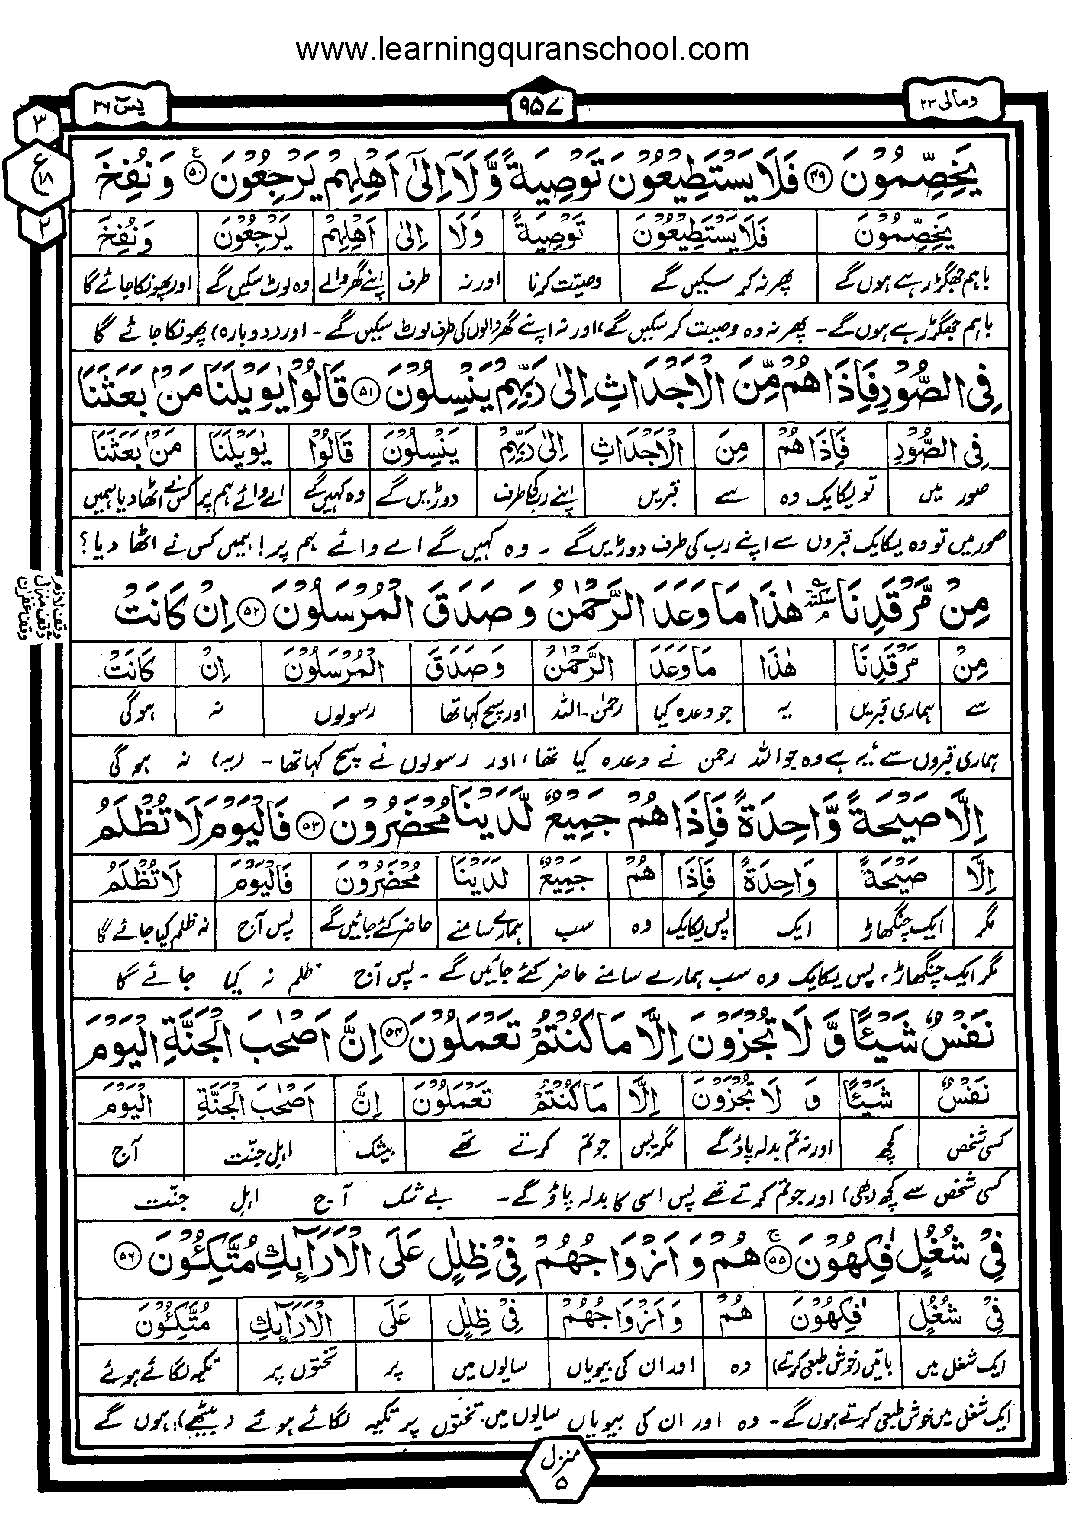 www.learningquranschool.com
یٰسٓ ۳۶
۹۵۷
ومالی ۲۳
۳
ع
۱۸
۲
يَخِصِّمُوْنَ ۴۹ فَلَا يَسْتَطِيْعُوْنَ تَوْصِيَةً وَّلَاۤ اِلٰۤى اَهْلِهِمْ يَرْجِعُوْنَ ۵۰ وَنُفِخَ
يَخِصِّمُوْنَ فَلَا يَسْتَطِيْعُوْنَ تَوْصِيَةً وَلَا اِلٰى اَهْلِهِمْ يَرْجِعُوْنَ وَنُفِخَ
باہم جھگڑ رہے ہوں گے پھر نہ کر سکیں گے وصیت کرنا اور نہ طرف اپنے گھر والے وہ لوٹ سکیں گے اور پھونکا جائے گا
باہم جھگڑ رہے ہوں گے۔ پھر نہ وہ وصیت کر سکیں گے، اور نہ اپنے گھر والوں کی طرف لوٹ سکیں گے۔ اور (دوبارہ) پھونکا جائے گا
فِى الصُّوْرِ فَاِذَا هُمْ مِّنَ الْاَجْدَاثِ اِلٰى رَبِّهِمْ يَنْسِلُوْنَ ۵۱ قَالُوْا يٰوَيْلَنَا مَنْۢ بَعَثَنَا
فِى الصُّوْرِ فَاِذَا هُمْ مِنَ الْاَجْدَاثِ اِلٰى رَبِّهِمْ يَنْسِلُوْنَ قَالُوْا يٰوَيْلَنَا مَنْۢ بَعَثَنَا
صور میں تو یکایک وہ سے قبریں اپنے رب کی طرف دوڑیں گے وہ کہیں گے اے وائے ہم پر کس نے اٹھا دیا ہمیں
صور میں تو وہ یکایک قبروں سے اپنے رب کی طرف دوڑیں گے۔ وہ کہیں گے اے وائے ہم پر! ہمیں کس نے اٹھا دیا؟
مِنْ مَّرْقَدِنَا هٰذَا مَا وَعَدَ الرَّحْمٰنُ وَصَدَقَ الْمُرْسَلُوْنَ ۵۲ اِنْ كَانَتْ
مِنْ مَرْقَدِنَا هٰذَا مَا وَعَدَ الرَّحْمٰنُ وَصَدَقَ الْمُرْسَلُوْنَ اِنْ كَانَتْ
سے ہماری قبریں یہ جو وعدہ کیا رحمٰن۔ اللہ اور سچ کہا تھا رسولوں نہ ہوگی
ہماری قبروں سے یہ ہے وہ جو اللہ رحمن نے وعدہ کیا تھا، اور رسولوں نے سچ کہا تھا۔ (یہ) نہ ہو گی
اِلَّا صَيْحَةً وَّاحِدَةً فَاِذَا هُمْ جَمِيْعٌ لَّدَيْنَا مُحْضَرُوْنَ ۵۳ فَالْيَوْمَ لَا تُظْلَمُ
اِلَّا صَيْحَةً وَاحِدَةً فَاِذَا هُمْ جَمِيْعٌ لَدَيْنَا مُحْضَرُوْنَ فَالْيَوْمَ لَا تُظْلَمُ
مگر ایک چنگھاڑ ایک پس یکایک وہ سب ہمارے سامنے حاضر کئے جائیں گے پس آج نہ ظلم کیا جائے گا
مگر ایک چنگھاڑ، پس یکایک وہ سب ہمارے سامنے حاضر کئے جائیں گے۔ پس آج ظلم نہ کیا جائے گا
نَفْسٌ شَيْئًا وَّلَا تُجْزَوْنَ اِلَّا مَا كُنْتُمْ تَعْمَلُوْنَ ۵۴ اِنَّ اَصْحٰبَ الْجَنَّةِ الْيَوْمَ
نَفْسٌ شَيْئًا وَ لَا تُجْزَوْنَ اِلَّا مَا كُنْتُمْ تَعْمَلُوْنَ اِنَّ اَصْحٰبَ الْجَنَّةِ الْيَوْمَ
کسی شخص کچھ اور نہ تم بدلہ پاؤ گے مگر پس جو تم کرتے تھے بیشک اہلِ جنّت آج
کسی شخص سے کچھ (بھی) اور جو تم کرتے تھے پس اسی کا بدلہ پاؤ گے۔ بے شک آج اہلِ جنّت
فِىْ شُغُلٍ فٰكِهُوْنَ ۵۵ هُمْ وَاَزْوَاجُهُمْ فِىْ ظِلٰلٍ عَلَى الْاَرَآئِكِ مُتَّكِـُٔوْنَ ۵۶
فِىْ شُغُلٍ فٰكِهُوْنَ هُمْ وَاَزْوَاجُهُمْ فِىْ ظِلٰلٍ عَلَى الْاَرَآئِكِ مُتَّكِـُٔوْنَ
ایک شغل میں باتیں (خوش طبعی کرتے) وہ اور ان کی بیویاں سایوں میں پر تختوں پر تکیہ لگائے ہوئے
ایک شغل میں خوش طبعی کرتے ہوں گے۔ وہ اور ان کی بیویاں سایوں میں تختوں پر تکیہ لگائے ہوئے (بیٹھے) ہوں گے
منزل ۵